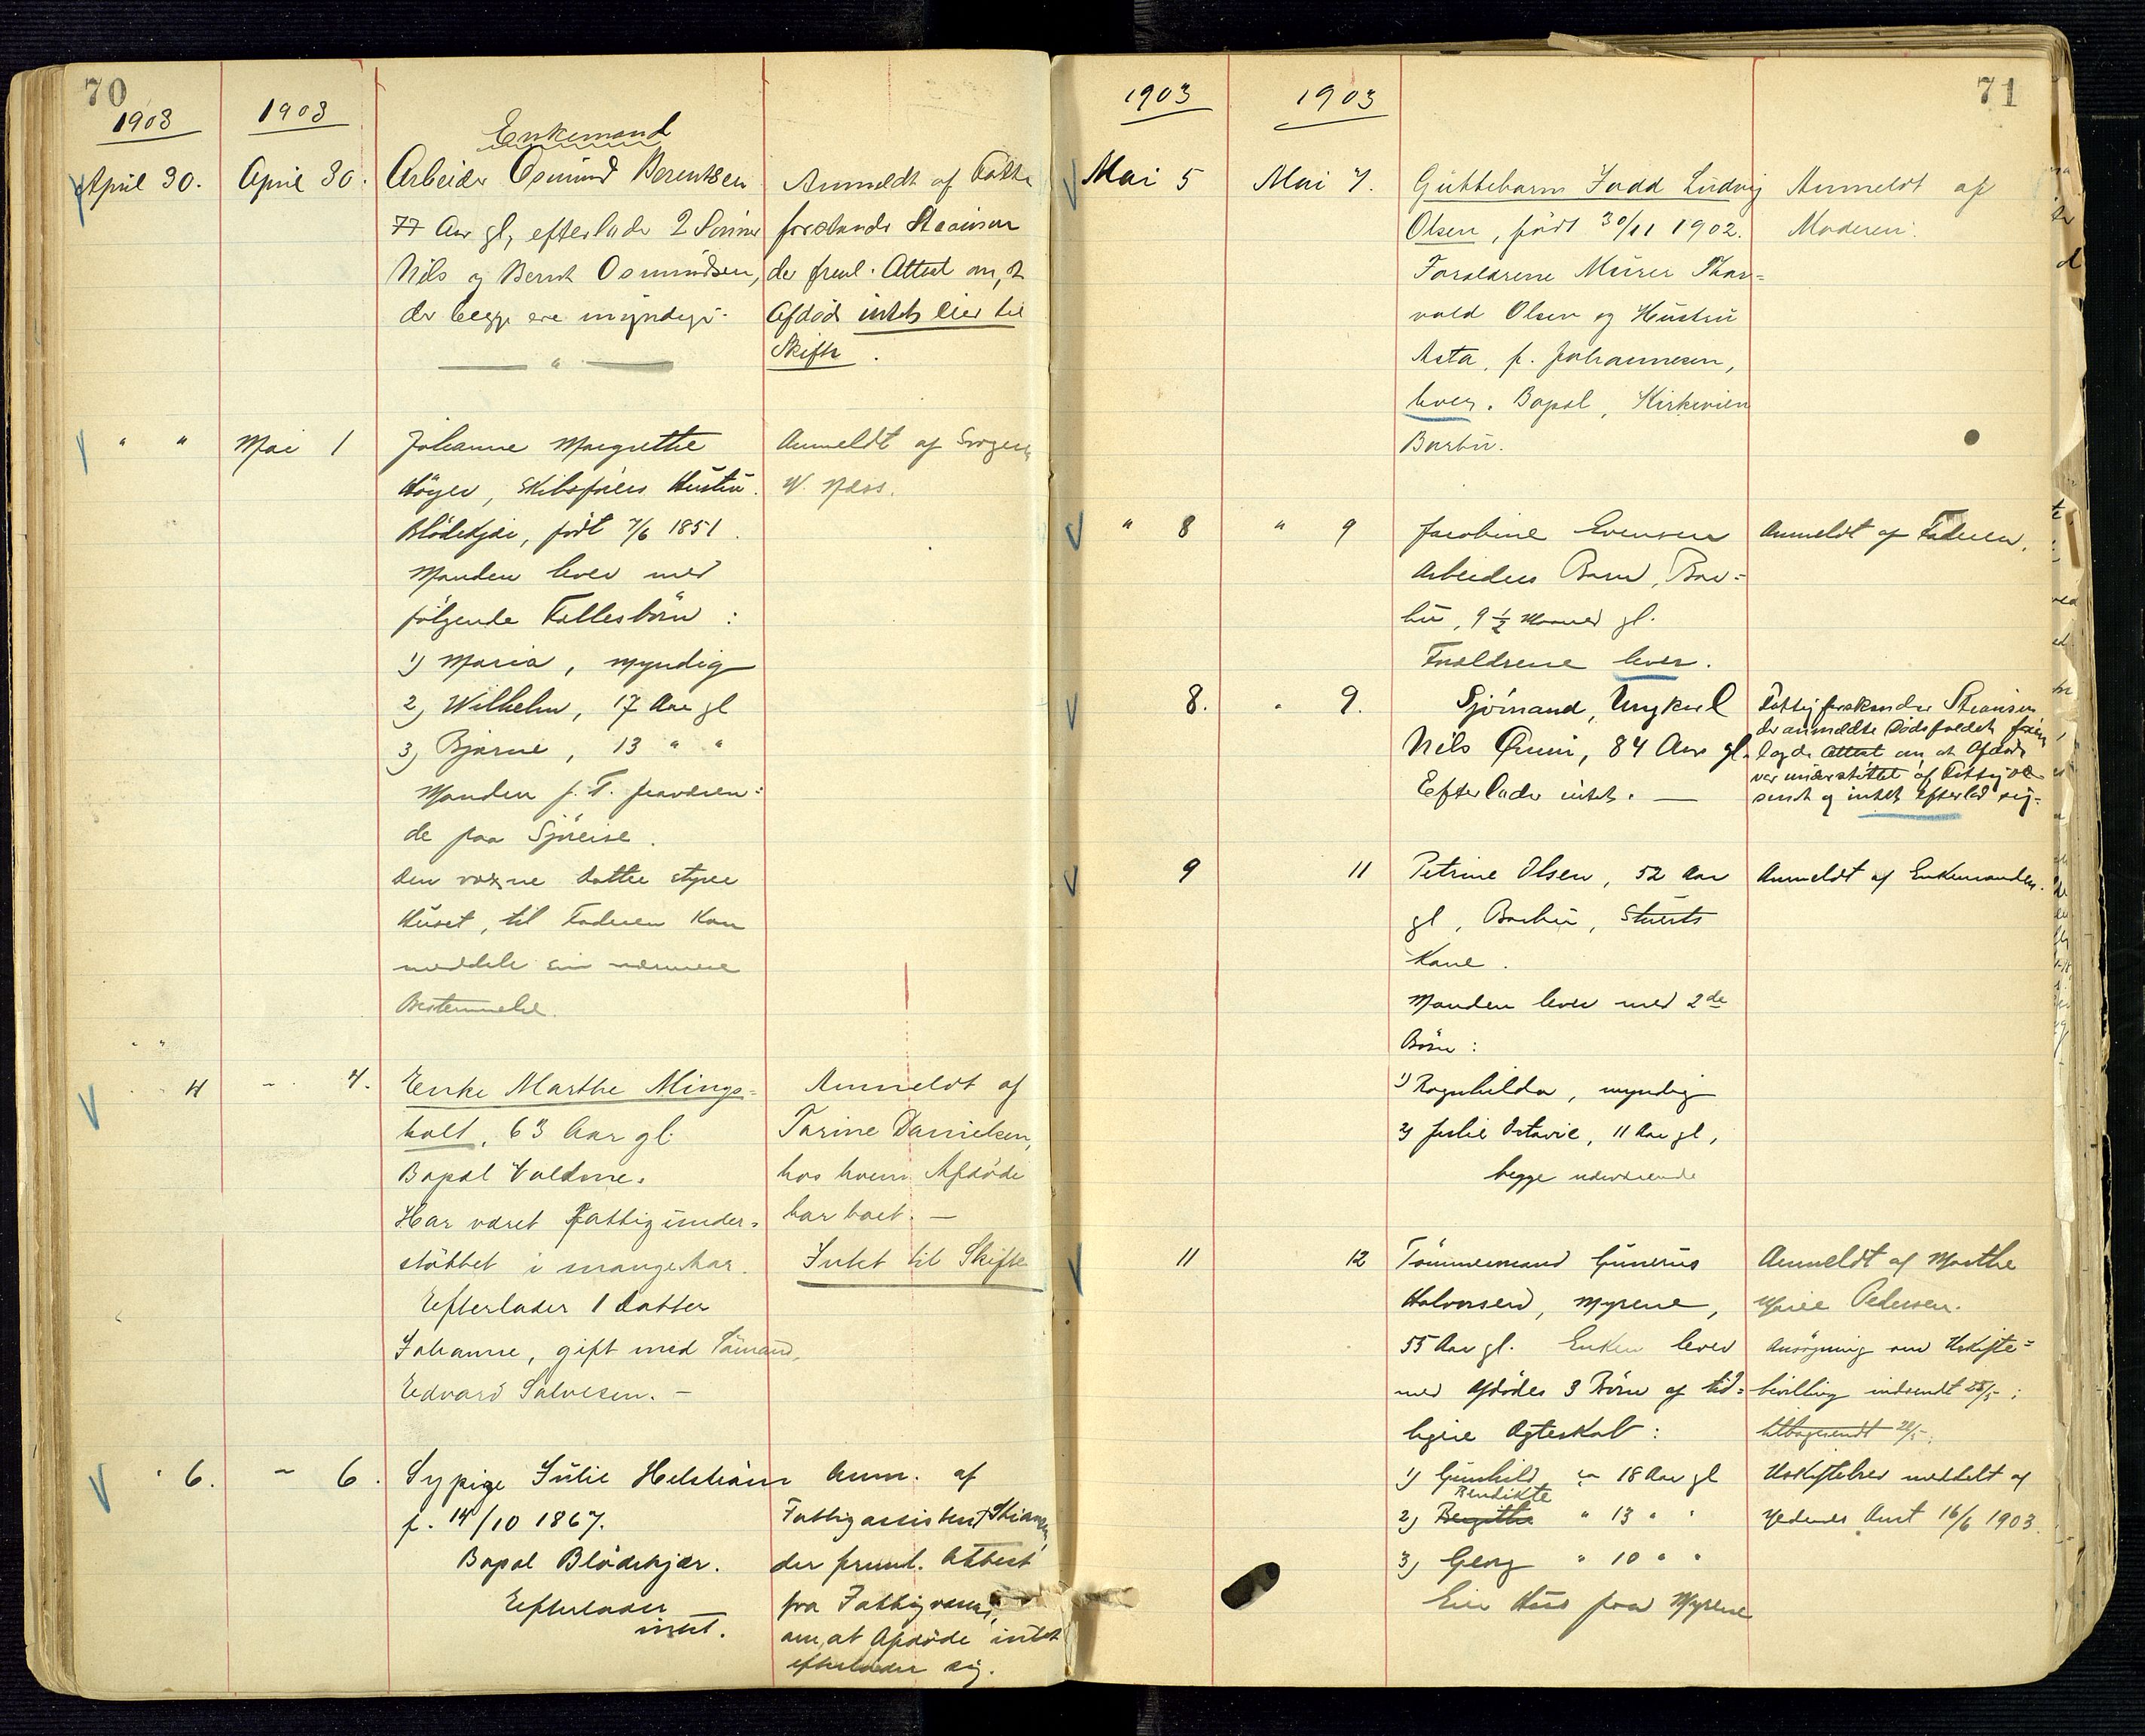 70
1903
1903
Enkemand
April 30. April 30. Arbeider Osmund Berentsen
77 Aar gl, efterlader 2 Sønner
Nils og Bernt Osmundsen,
der begge ere myndige.
Anmeldt af
forstander Steainsen
der freml. Attest om, at
Afdøde intet eier til
Skifte.
" " Mai 1 Johanne Margrethe
Høyer, Skibsførers Hustru.
Blödekjær, født 7/6 1851.
Manden lever med
følgende Fællesbörn:
1) Maria, myndig
2) Wilhelm, 17 Aar gl
3) Bjarne, 13 " "
Manden p. T. fraværen-
de paa Sjöreise.
Den voxne Datter styrer
Huset, til Faderen kan
meddele sin nærmere
Bestemmelse.
Anmeldt af
W. Næss.
4 - 4. Enke Marthe Mings-
holt, 63 Aar gl.
Bopæl Voldene.
Har været Fattigunder-
støttet i mange Aar.
Efterlader 1 Datter
Johanne, gift med Sömand,
Edvard Salvesen. -
Anmeldt af
Tarine Danielsen,
hos hvem Afdöde
har boet. -
Intet til Skifte
6. - 6. Sypige Julie Helström
f. 14/10 1867.
Bopæl Blödekjær.
Efterlader
intet.
Anm. af
Fattigassistent
der freml. Attest
fra Fattigvæsenet
om, at Afdöde intet
efterlader sig.
71
1903
1903
Mai 5 Mai 7. Guttebarn Ludvig
Olsen, født 30/11 1902.
Forældrene Murer Thor-
vald Olsen og Hustru
Asta, f. Johannesen,
lever. Bopæl, Kirkeveien
Barbu.
Anmeldt af
Moderen.
" 8 " 9 Jacobine Evensen
Arbeiders Barn, Bar-
bu, 9 1/2 Maaned gl.
Forældrene lever.
Anmeldt af Faderen.
8. " 9. Sjömand, Ungkarl
Nils 84 Aar gl.
Efterlader intet. -
Fattigforstander Steainsen
der anmeldte Dødsfaldet frem-
lagde Attest om, at Afdöde
var understöttet af Fattigvæ-
senet og intet efterlod sig.
9 11 Petrine Olsen, 52 Aar
gl, Barbu, Stuerts
Kone.
Manden lever med 2de
Börn:
1) Ragnhilda, myndig
2) Julie Octavie, 11 Aar gl,
begge udeværende
Anmeldt af Enkemanden.
11 12 Tömmermand Gunerius
Halvorsen, Myrene,
55 Aar gl. Enken lever
med Afdödes 3 Börn af tid-
ligere Ægteskab:
1) Gunhild, ca 18 Aar gl
Benedikte
2) Birgitte " 13 " "
3) Georg " 10 " "
Eier Hus paa Myrene
Anmeldt af Marthe
Marie Pedersen.
Ansögning om Uskifte-
bevilling indsendt 25/5;
tilbagesendt
Uskiftebrev meddelt af
Nedenes Amt 16/6 1903.